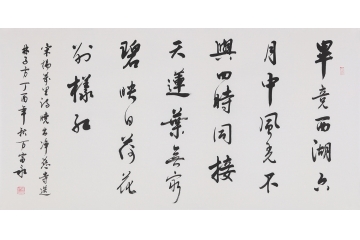 畢竟西湖六
月中風光不
與四時同接
天蓮葉無窮
碧映日荷花
別樣紅
宋楊萬里詩曉出淨慈寺送
林子方丁酉年秋方